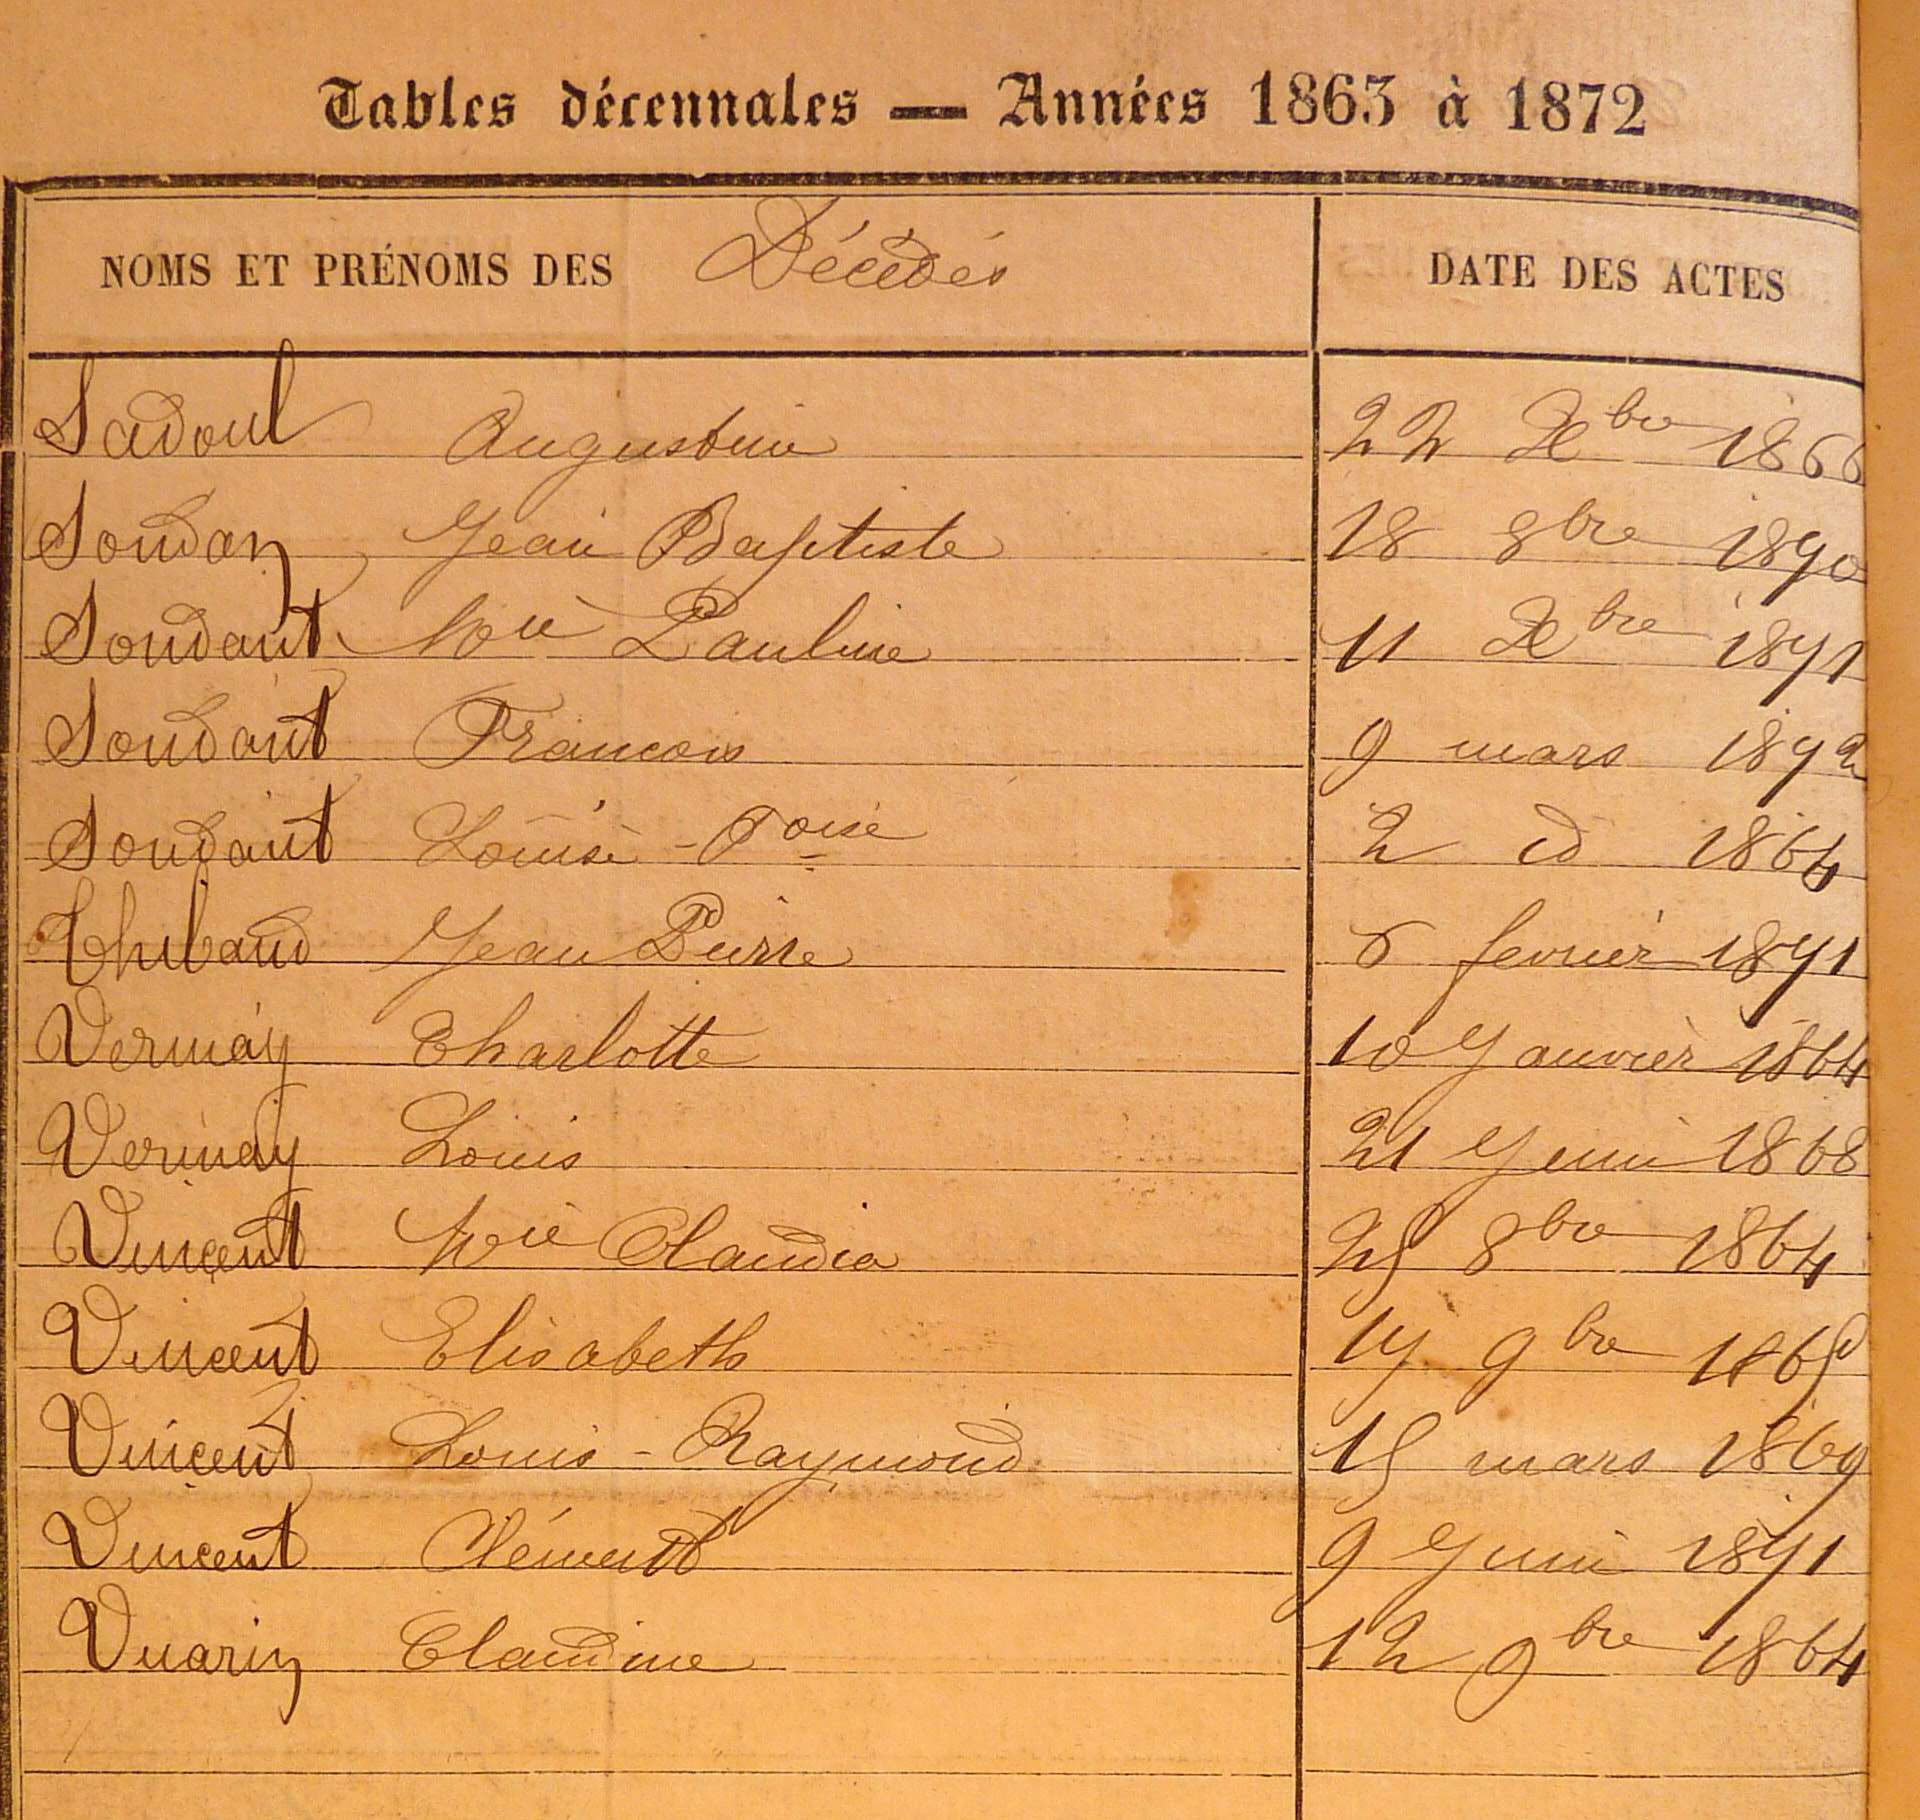 Tables décennales — Années 1863 à 1872
NOMS ET PRÉNOMS DES Décédés DATE DES ACTES
Sadoul Augustine 22 Xbre 1866
Soudan Jean Baptiste 18 8bre 1870
Soudant Mie Pauline 11 Xbre 1871
Soudant Francois 9 mars 1872
Soudant Louise - Foise 2 id 1864
Thibaud Jean Pierre 6 fevrier 1871
Vernay Charlotte 10 Janvier 1864
Vernay Louis 21 Juin 1868
Vincent Mie Claudia 25 8bre 1864
Vincent Elisabeth 17 9bre 1865
Vincent Louis - Raymond 15 mars 1869
Vincent Clément 9 Juin 1871
Vuarin Claudine 12 9bre 1864